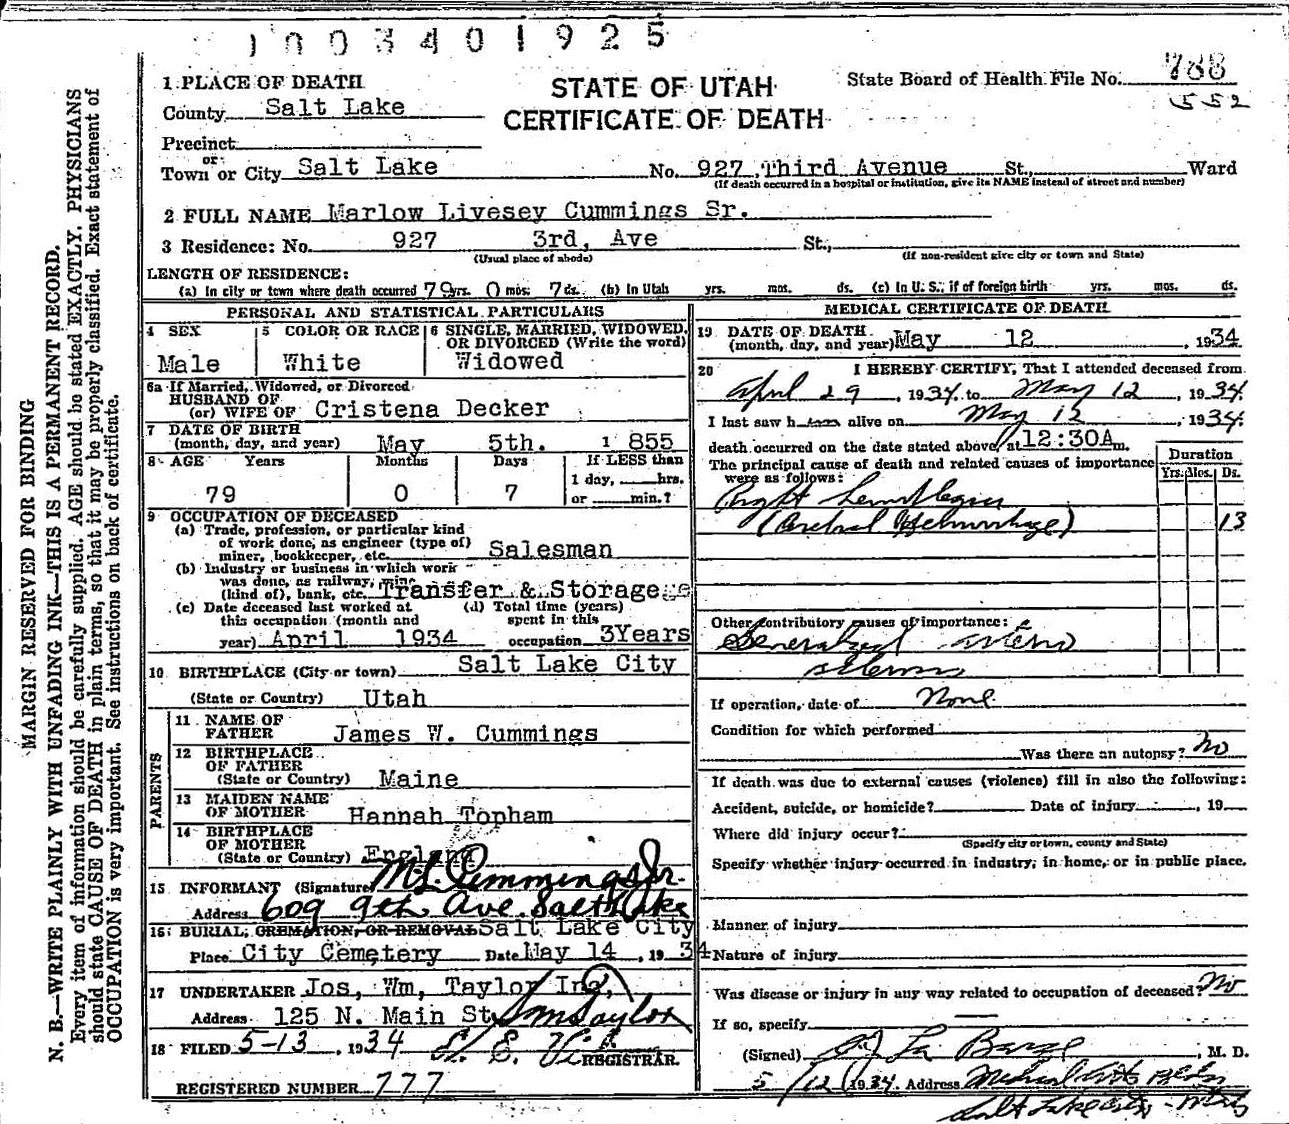 1003401925
1 PLACE OF DEATH
County Salt Lake
Precinct
or
Town or City Salt Lake
STATE OF UTAH
CERTIFICATE OF DEATH
State Board of Health File No. 788
552
No. 927 Third Avenue St., Ward
(If death occurred in a hospital or institution, give its NAME instead of street and number)
2 FULL NAME Marlow Livesey Cummings Sr.
3 Residence: No. 927 3rd, Ave St.,
(Usual place of abode) (If non-resident give city or town and State)
LENGTH OF RESIDENCE:
(a) In city or town where death occurred 79 yrs. 0 mos. 7 ds. (b) In Utah yrs. mos. ds. (c) In U. S., if of foreign birth yrs. mos. ds.
PERSONAL AND STATISTICAL PARTICULARS
4 SEX Male
5 COLOR OR RACE White
6 SINGLE, MARRIED, WIDOWED,
OR DIVORCED (Write the word)
Widowed
6a If Married, Widowed, or Divorced
HUSBAND OF
(or) WIFE OF Cristena Decker
7 DATE OF BIRTH
(month, day, and year) May 5th. 1855
8 AGE Years Months Days If LESS than
1 day, hrs.
79 0 7 or min.?
9 OCCUPATION OF DECEASED
(a) Trade, profession, or particular kind
of work done, as engineer (type of)
miner, bookkeeper, etc. Salesman
(b) Industry or business in which work
was done, as railway, mine
(kind of), bank, etc. Transfer & Storage
(c) Date deceased last worked at
this occupation (month and
year) April 1934
(d) Total time (years)
spent in this
occupation 3Years
10 BIRTHPLACE (City or town) Salt Lake City
(State or Country) Utah
PARENTS
11 NAME OF
FATHER James W. Cummings
12 BIRTHPLACE
OF FATHER
(State or Country) Maine
13 MAIDEN NAME
OF MOTHER Hannah Topham
14 BIRTHPLACE
OF MOTHER
(State or Country) England
15 INFORMANT (Signature) M. L. Cummings Jr.
Address 609 9th Ave. Salt Lake
16 BURIAL, CREMATION, OR REMOVAL Salt Lake City
Place City Cemetery Date May 14, 1934
17 UNDERTAKER Jos, Wm, Taylor Inc,
Address 125 N. Main St. Wm Taylor
18 FILED 5-13, 1934
REGISTRAR.
REGISTERED NUMBER 777
MEDICAL CERTIFICATE OF DEATH
19 DATE OF DEATH
(month, day, and year) May 12, 1934
20 I HEREBY CERTIFY, That I attended deceased from
April 29, 1934, to May 12, 1934.
I last saw h alive on May 12, 1934.
death occurred on the date stated above, at 12:30A m.
The principal cause of death and related causes of importance
were as follows:
Duration
Yrs. Mos. Ds.
Right Hemiplegia
(Cerebral Hemorrhage) 13
Other contributory causes of importance:
Generalized arterio
sclerosis
If operation, date of None
Condition for which performed
Was there an autopsy? No
If death was due to external causes (violence) fill in also the following:
Accident, suicide, or homicide? Date of injury , 19
Where did injury occur?
(Specify city or town, county and State)
Specify whether injury occurred in industry, in home, or in public place.
Manner of injury
Nature of injury
Was disease or injury in any way related to occupation of deceased? No
If so, specify
(Signed) La Barge, M. D.
5/12 1934 Address Medical Arts Bldg
Salt Lake City
MARGIN RESERVED FOR BINDING
N. B.—WRITE PLAINLY WITH UNFADING INK—THIS IS A PERMANENT RECORD.
Every item of information should be carefully supplied. AGE should be stated EXACTLY. PHYSICIANS
should state CAUSE OF DEATH in plain terms, so that it may be properly classified. Exact statement of
OCCUPATION is very important. See instructions on back of certificate.